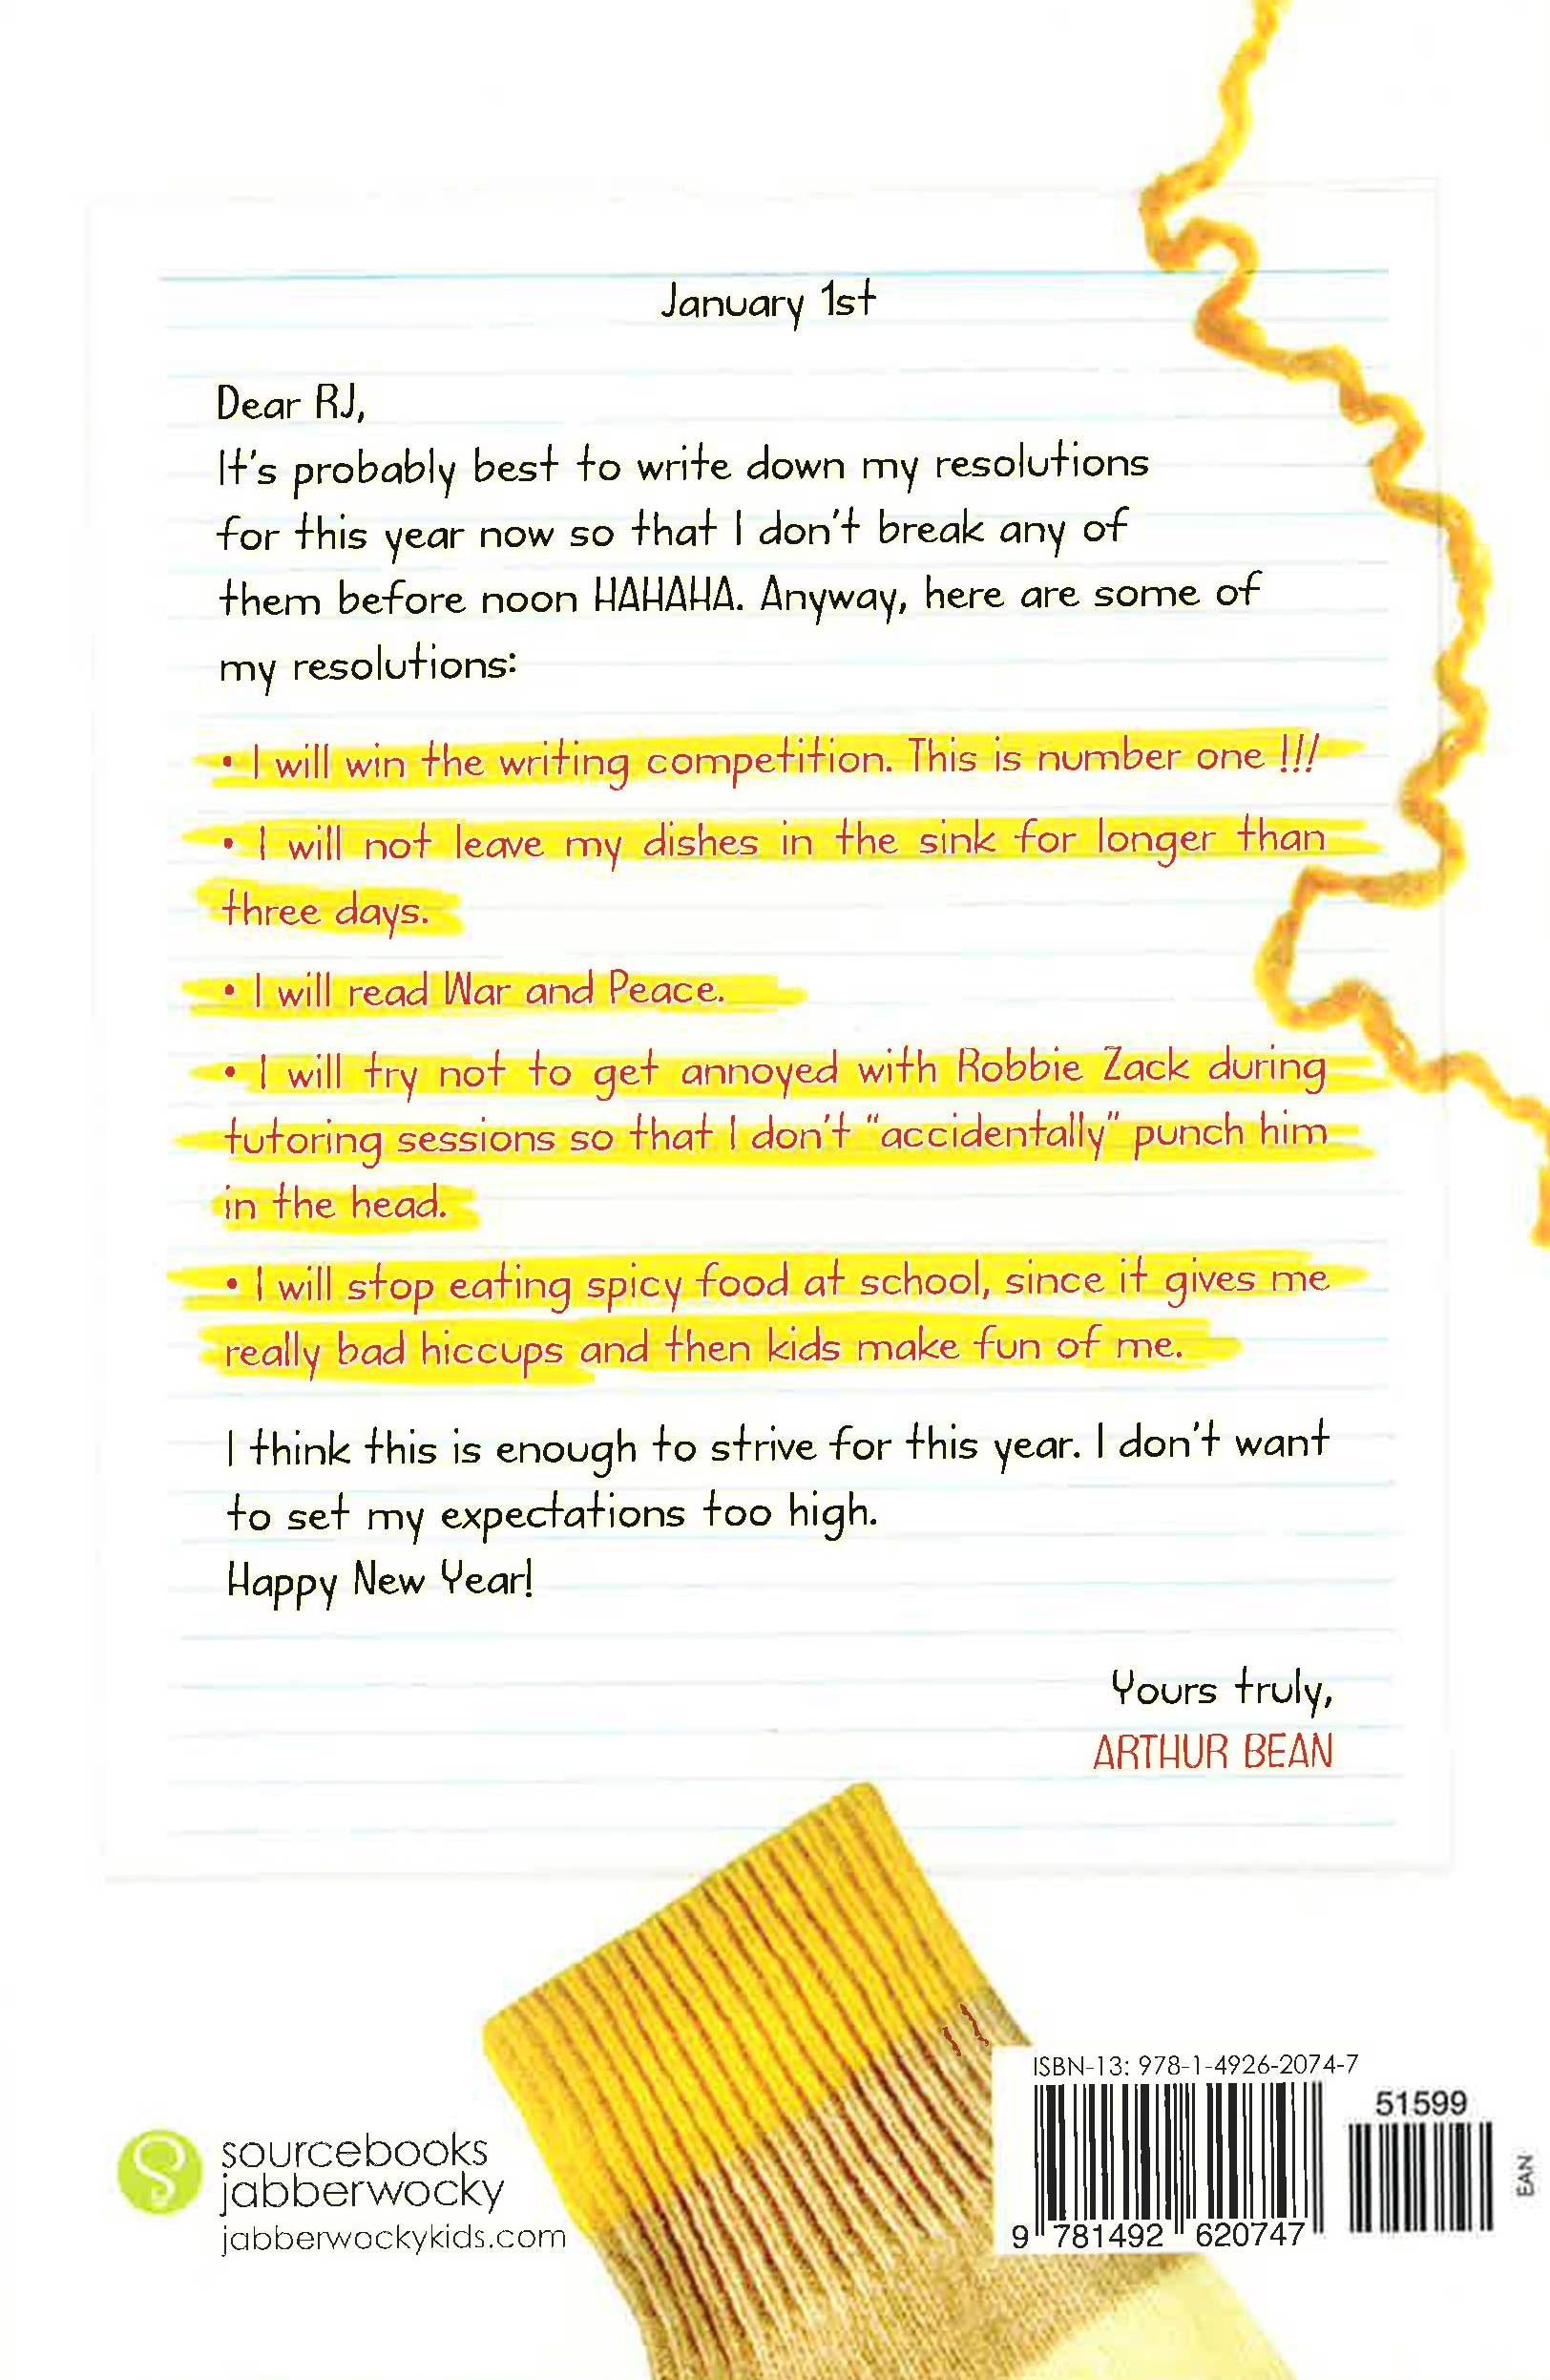 January 1st
Dear RJ,
It's probably best to write down my resolutions
for this year now so that I don't break any of
them before noon HAHAHA. Anyway, here are some of
my resolutions:
• I will win the writing competition. This is number one !!!
• I will not leave my dishes in the sink for longer than
three days.
• I will read War and Peace.
• I will try not to get annoyed with Robbie Zack during
tutoring sessions so that I don't "accidentally" punch him
in the head.
• I will stop eating spicy food at school, since it gives me
really bad hiccups and then kids make fun of me.
I think this is enough to strive for this year. I don't want
to set my expectations too high.
Happy New Year!
Yours truly,
ARTHUR BEAN
sourcebooks
jabberwocky
jabberwockykids.com
ISBN-13: 978-1-4926-2074-7
51599
9 781492 620747
EAN